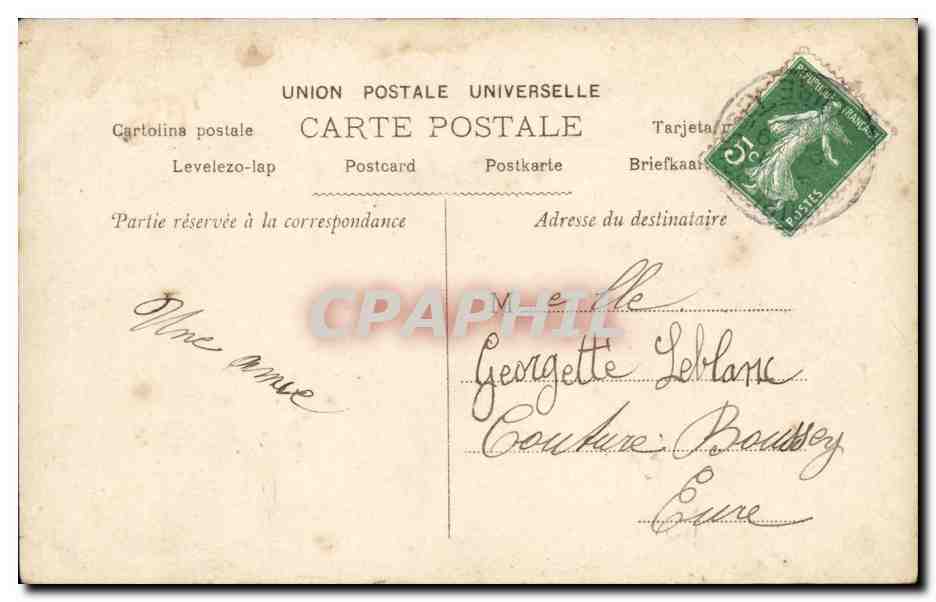 UNION POSTALE UNIVERSELLE
Cartolina postale CARTE POSTALE Tarjeta
Levelezo-lap Postcard Postkarte Briefkaar
Partie réservée à la correspondance
Adresse du destinataire
REPUBLIQUE FRANÇAISE
5c
POSTES
Une amie
Melle
Georgette Leblanc
Couture Boussey
Eure
CPAPHIL